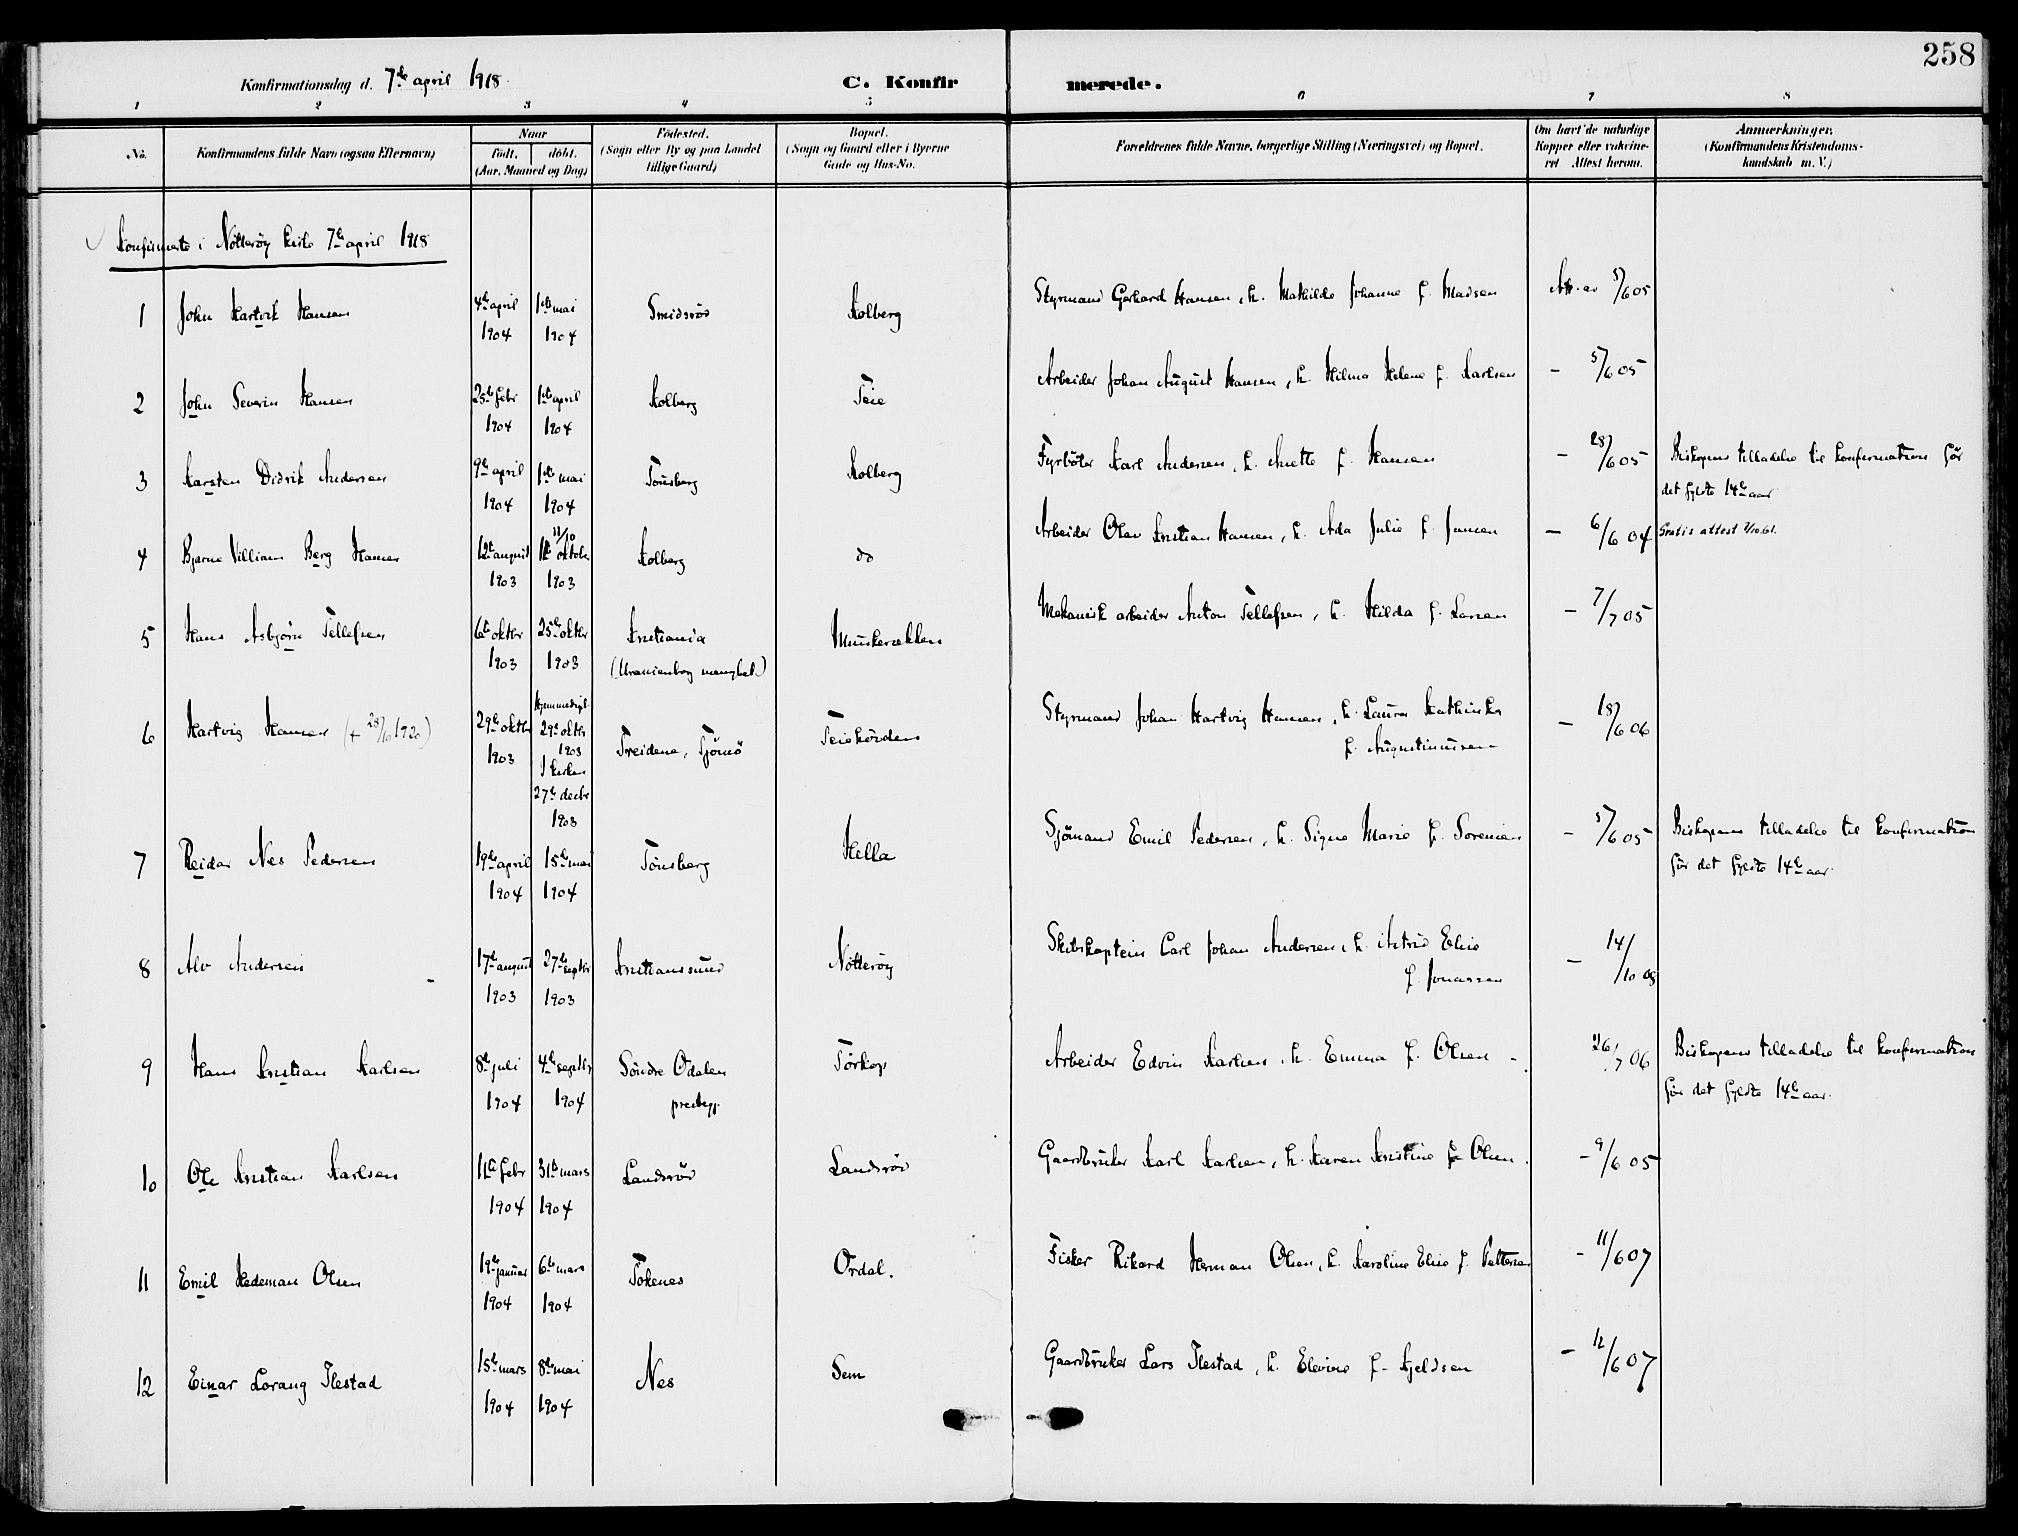 258
Konfirmationsdag d. 7de april 1918.
C. Konfirmerede.
1 2 3 4 5 6 7 8
No.
Konfirmandens fulde Navn (ogsaa Efternavn)
Naar
født. døbt.
(Aar, Maaned og Dag)
Fødested.
(Sogn eller By og paa Landet
tillige Gaard)
Bopæl.
(Sogn og Gaard eller i Byerne
Gade og Hus-No.
Forældrenes fulde Navne, borgerlige Stilling (Næringsvei) og Bopæl.
Om havt de naturlige
Kopper eller vakcine-
ret Attest herom.
Anmerkninger.
(Konfirmandens Kristendoms-
kundskab m. V.)
Konfirmerte i Nøtterøy kirke 7de april 1918
1 John Hartvik Hansen 4de april 1904 1ste mai 1904 Smidsrød Kolberg Styrmand Gerhard Hansen, h. Mathilde Johanne f. Madsen Att. av 5/6 05
2 John Severin Hansen 25de febr 1904 1ste april 1904 Kolberg Teie Arbeider Johan August Hansen, h. Hilma Helene f. Karlsen – 5/6 05
3 Karsten Didrik Andersen 9de april 1904 1ste mai 1904 Tønsberg Kolberg Fyrbøter Karl Andersen, h. Anette f. Hansen – 28/6 05 Biskopens tilladelse til konfirmation før
det fyldte 14de aar
4 Bjarne Villiam Berg Hansen 12te august 1903 11/10 11te oktober 1903 Kolberg do Arbeider Olav Kristian Hansen, h. Ada Julie f. Jansen – 6/6 04 Gratis attest 7/10.61.
5 Hans Asbjørn Tellefsen 6te oktbr 1903 25de oktbr 1903 Kristiania
(Uranienborg menighet) Munkerækken Mekanisk arbeider Anton Tellefsen, h. Hilda f. Larsen – 7/7 05
6 Hartvig Hansen (+ 28/10 1920) 29de oktbr 1903 Hjemmedøpt
29de oktbr
1903
I kirken
27de decbr
1903 Treidene, Tjømø Teiehøiden Styrmand Johan Hartvig Hansen, h. Laura Kathinka
f. Augustinussen – 18/6 06
7 Reidar Nes Pedersen 19de april 1904 15de mai 1904 Tønsberg Hella Sjømand Emil Pedersen, h. Signe Marie f. Sorensen – 5/6 05 Biskopens tilladelse til konfirmation
før det fyldte 14de aar.
8 Alv Andersen 17de august 1903 27de septbr 1903 Kristianssund Nøtterøy Skibskaptein Carl Johan Andersen, h. Astrid Elise
f. Jonassen – 14/10 08
9 Hans Kristian Karlsen 8de juli 1904 4de septbr 1904 Søndre Odalen
prestegj. Tørkop Arbeider Edvin Karlsen, h. Emma f. Olsen – 26/7 06 Biskopens tilladelse til konfirmation
før det fyldte 14de aar.
10 Ole Kristian Karlsen 11te febr 1904 31te mars 1904 Landsrød Landsrød Gaardbruker Karl Karlsen, h. Karen Kristine f. Olsen. – 9/6 05
11 Emil Hedeman Olsen 19de januar 1904 6te mars 1904 Tokenes Ørdal. Fisker Rikard Herman Olsen, h. Karoline Elise f. Pettersen – 11/6 07
12 Einar Lorang Ilestad 15de mars 1904 8de mai 1904 Nes Sem Gaardbruker Lars Ilestad, h. Elevine f. Kjeldsen – 12/6 07